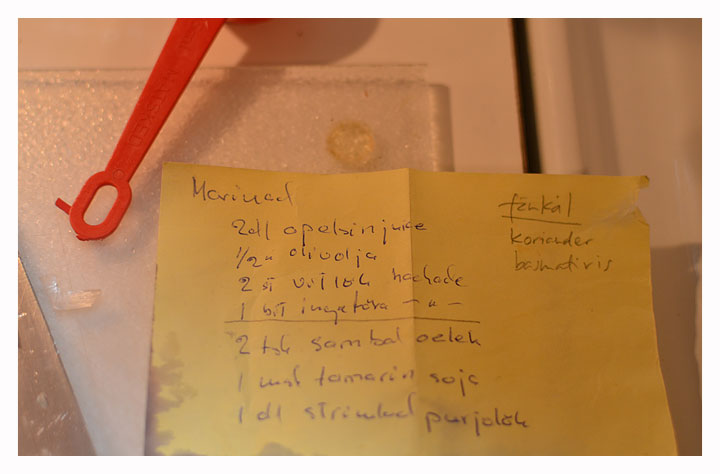 Marinad
2dl apelsinjuice
1/2 " olivolja
2 st vitlök hackade
1 bit ingefära — " —
2 tsk sambal oelek
1 msk tamarin soja
1 dl strimlad purjolök
fänkål
koriander
basmatiris